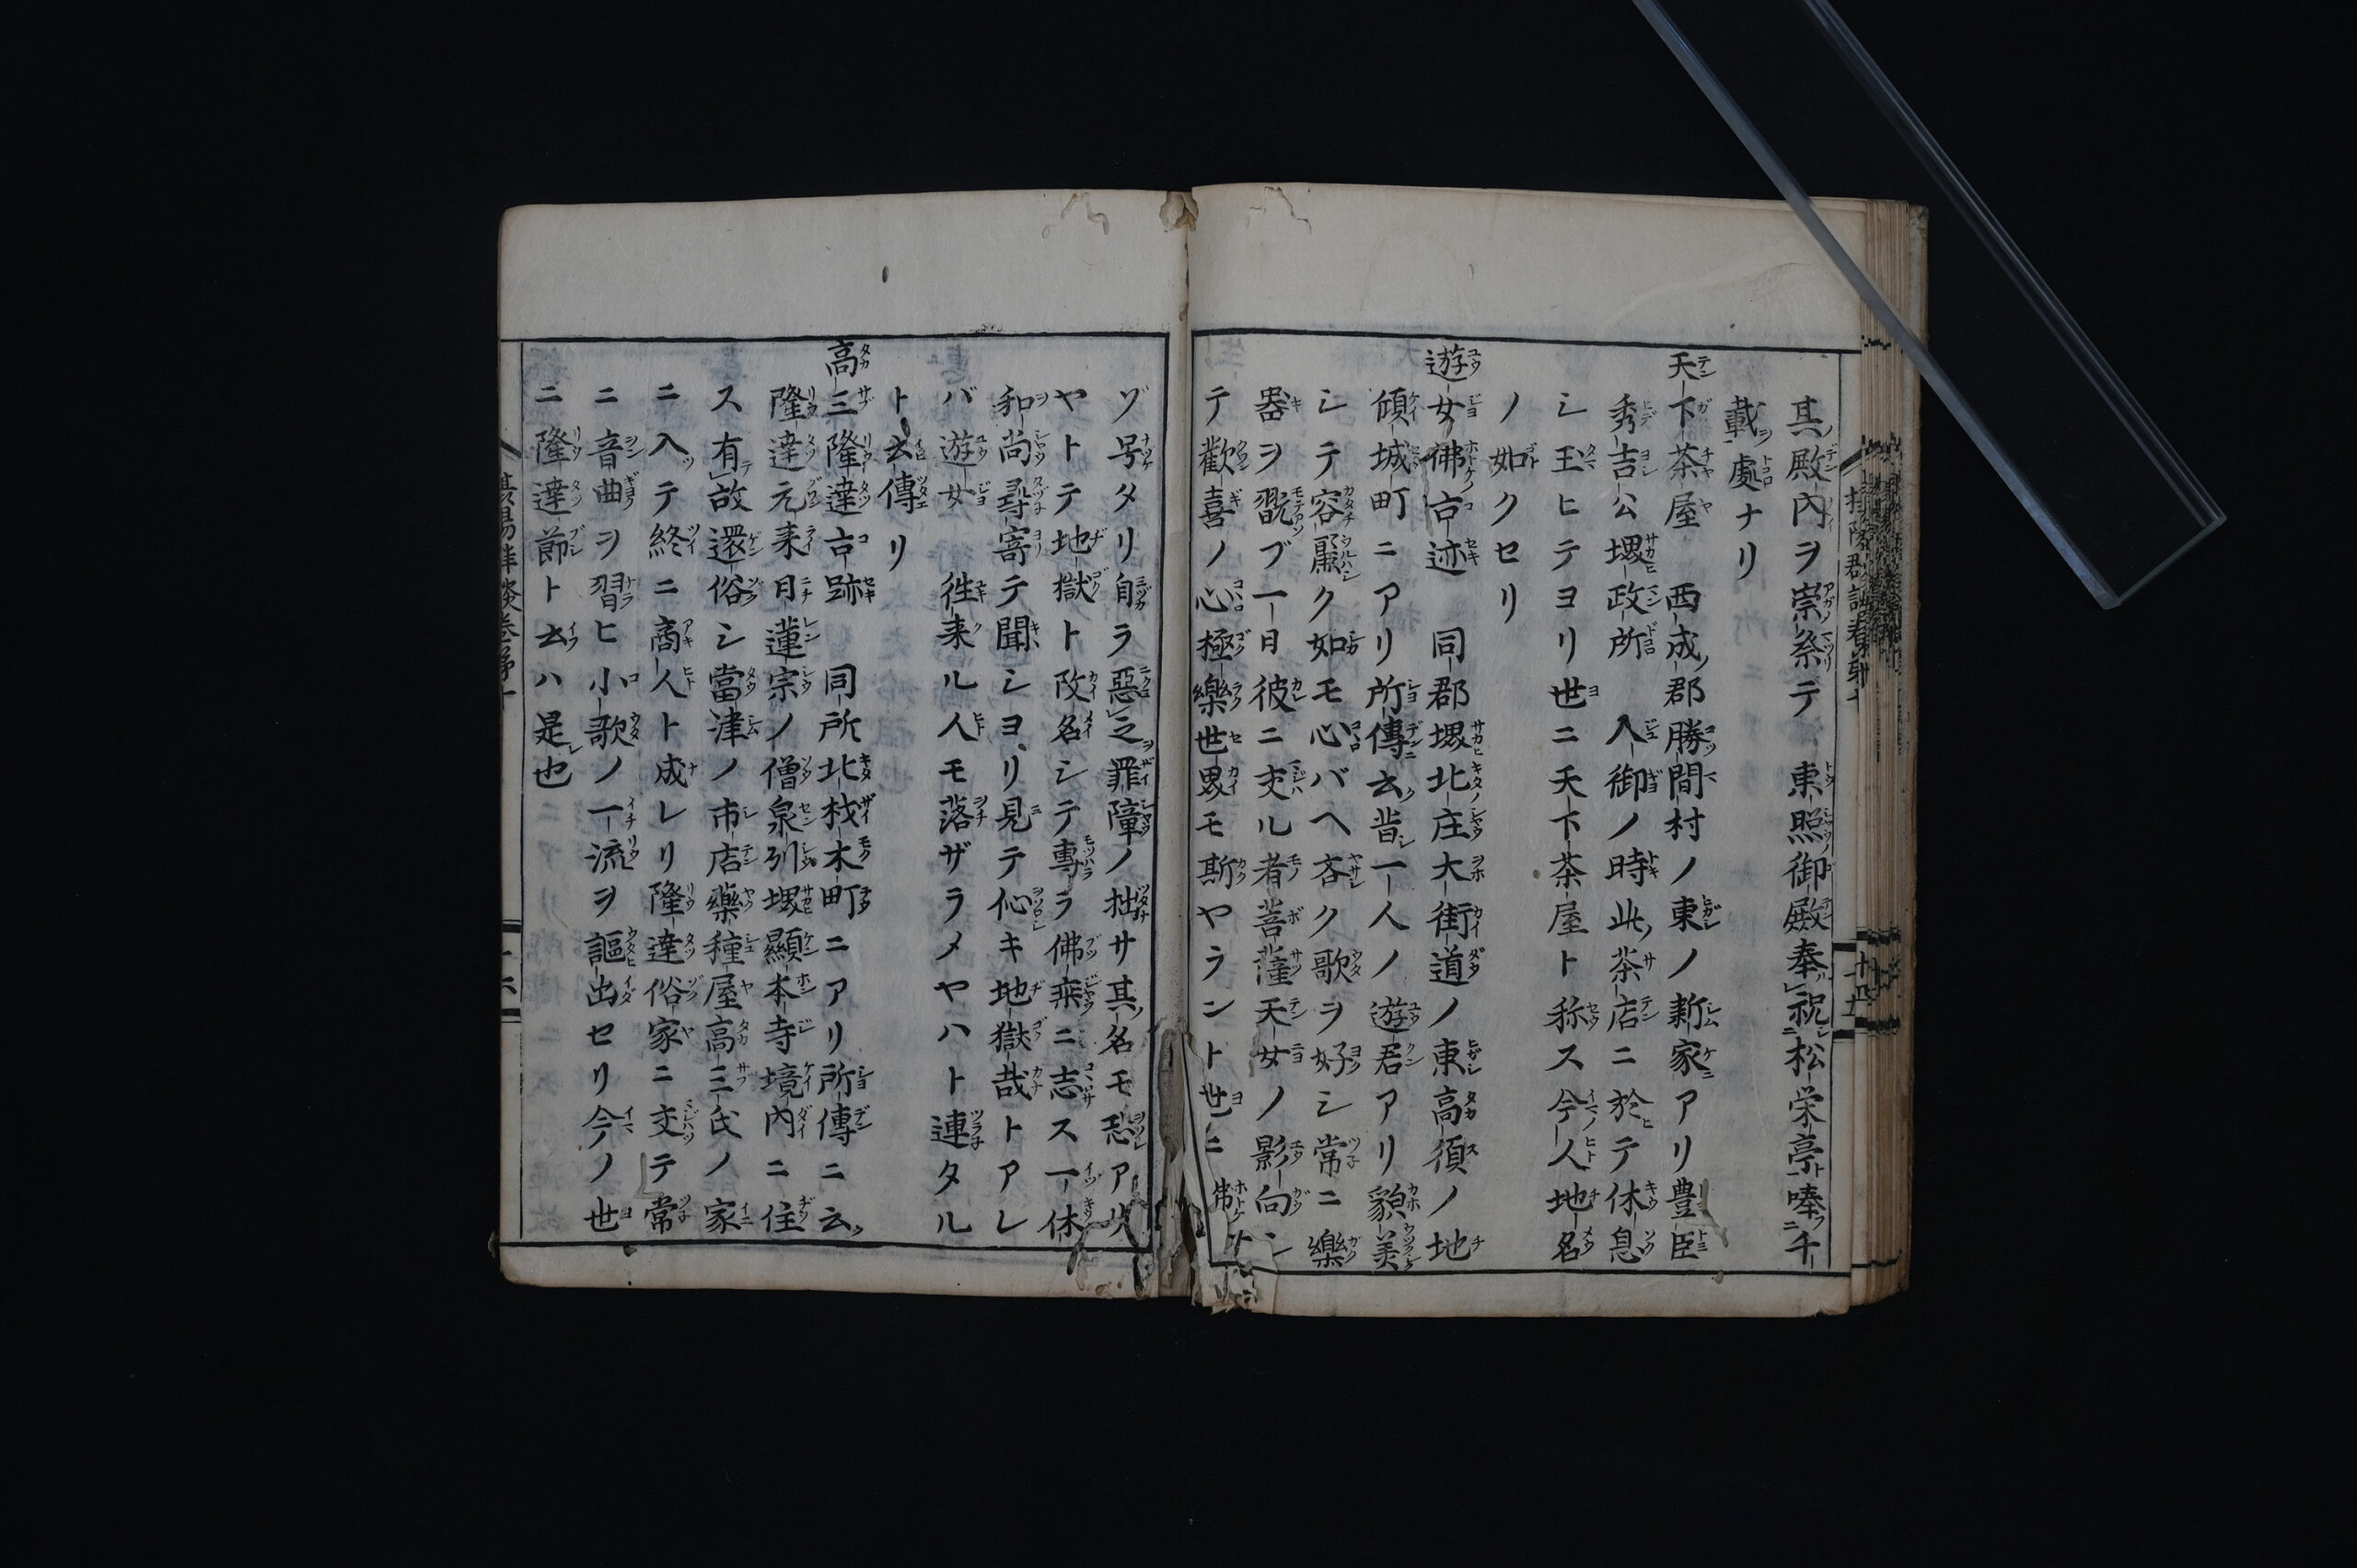 其殿内ヲ崇祭テ 東照御殿奉祝松栄亭唪千
載處ナリ
天下茶屋 西成郡勝間村ノ東ノ新家アリ豊臣
秀吉公堺政所 入御ノ時此茶店ニ於テ休息
シ玉ヒテヨリ世ニ天下茶屋ト称ス今人地名
ノ如クセリ
遊女佛古迹 同郡堺北庄大街道ノ東高須ノ地
傾城町ニアリ所傳云昔一人ノ遊君アリ貌美
シテ容麗ク如モ心バヘ吝ク歌ヲ好シ常ニ樂
器ヲ翫ブ一日彼ニ交ル者菩薩天女ノ影向シ
テ歡喜ノ心極樂世界モ斯ヤラント世ニ佛
ヅ号タリ自ラ惡之罪障ノ拙サ其名モ恐アリ
ヤトテ地獄ト改名シテ專ラ佛乘ニ志ス一休
和尚尋寄テ聞シヨリ見テ怭キ地獄哉トアレ
バ遊女 徃来ル人モ落ザラメヤハト連タル
ト云傳リ
高三隆達古跡 同所北材木町ニアリ所傳ニ云
隆達元来日蓮宗ノ僧泉州堺顯本寺境内ニ住
ス有故還俗シ當津ノ市店藥種屋高三氏ノ家
ニ入テ終ニ商人ト成レリ隆達俗家ニ交テ常
ニ音曲ヲ習ヒ小歌ノ一流ヲ謳出セリ今ノ世
ニ隆達節ト云ハ是也